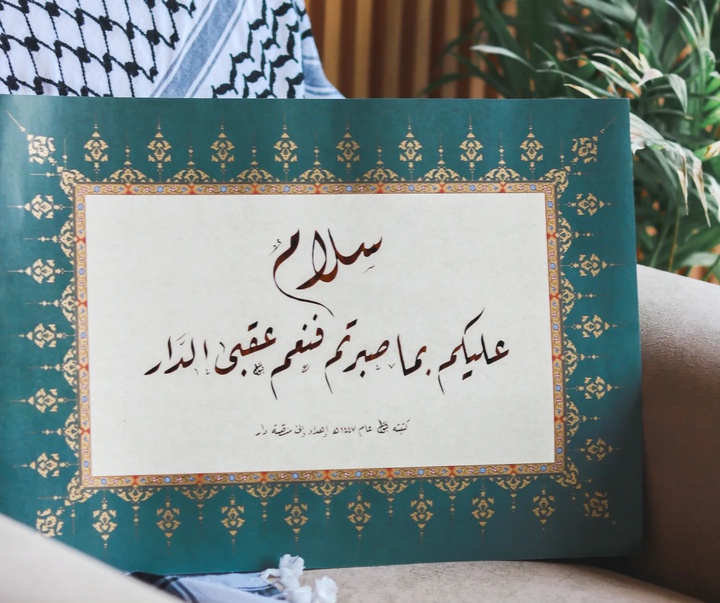 سلام
عليكم بما صبرتم فنعم عقبى الدَّار
كتبته عام ١٤٤٧هـ إهداء إلى منصة دار